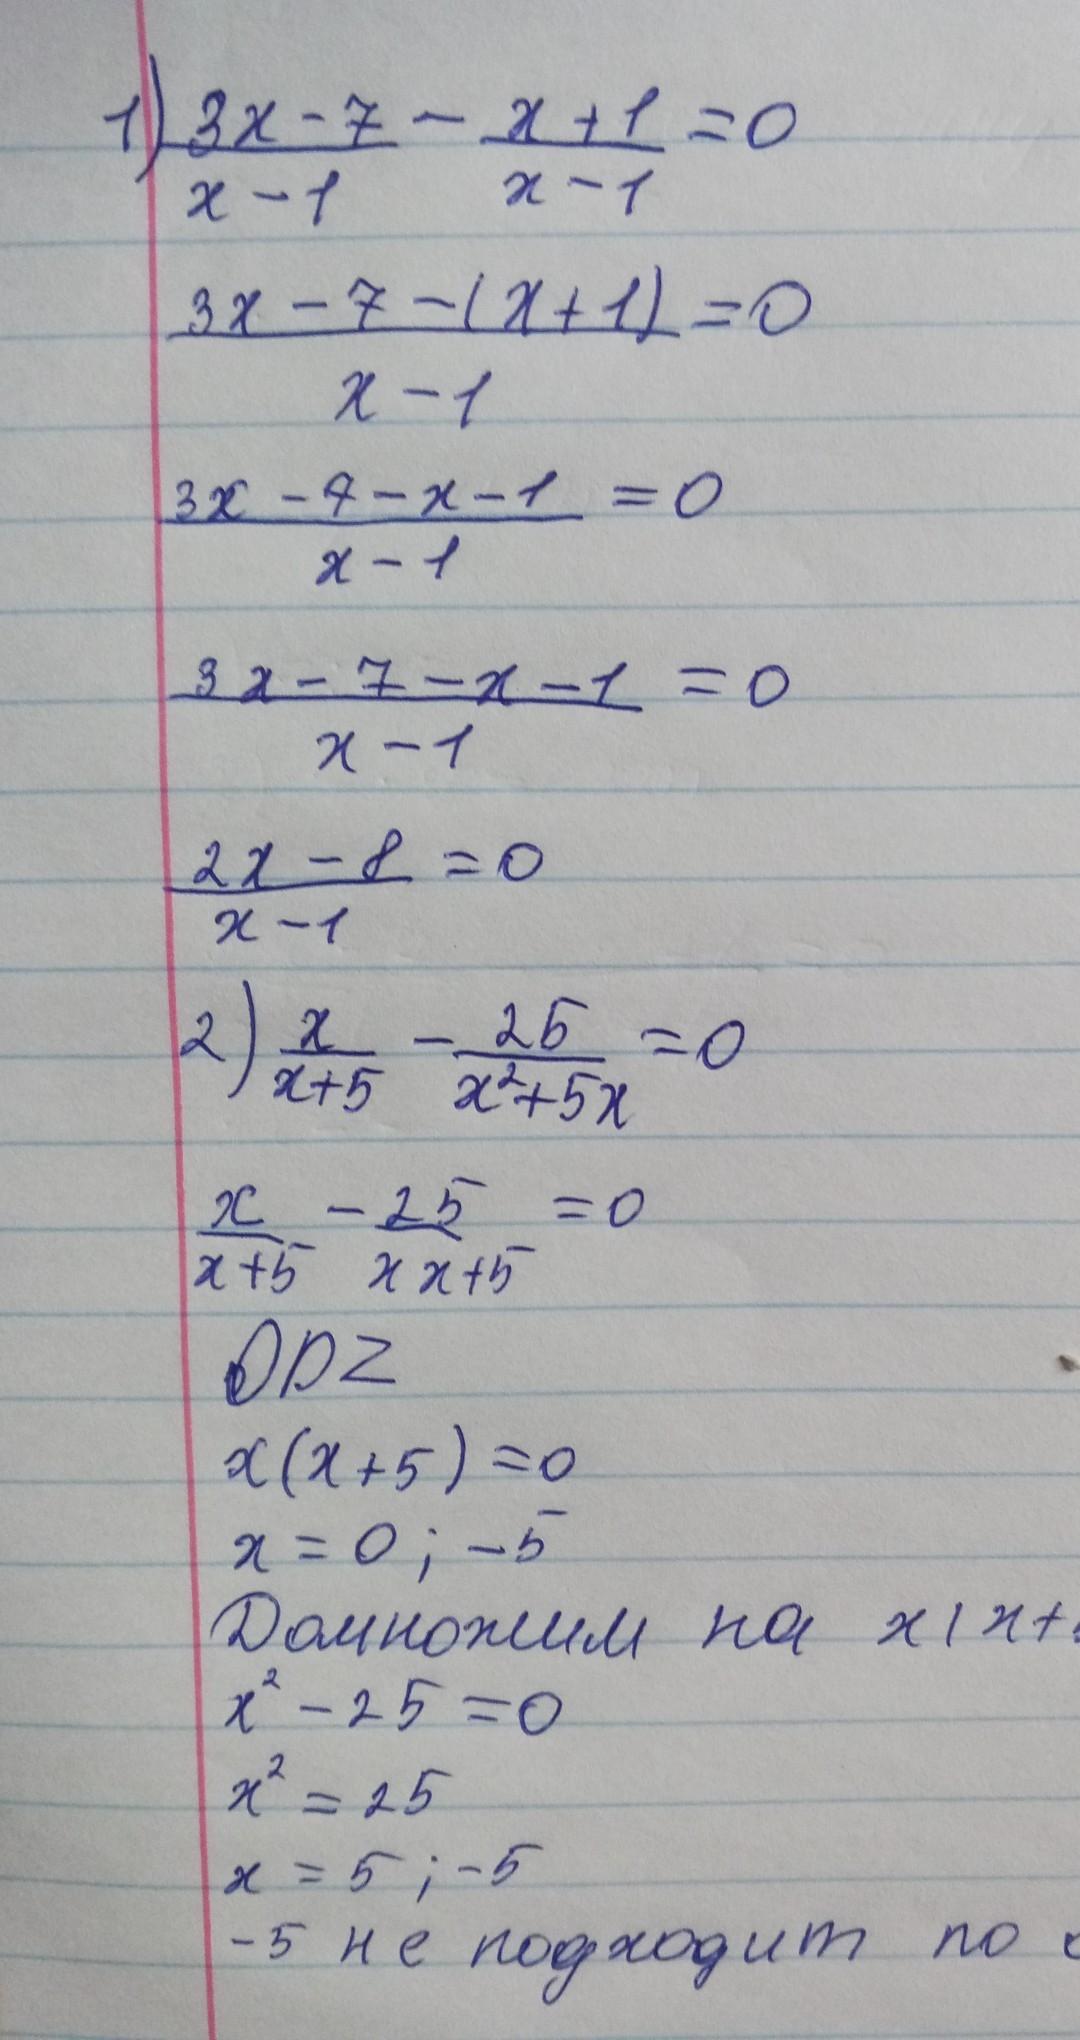 1) (3x-7)/(x-1) - (x+1)/(x-1) = 0
(3x-7-(x+1))/(x-1) = 0
(3x-7-x-1)/(x-1) = 0
(3x-7-x-1)/(x-1) = 0
(2x-8)/(x-1) = 0
2) x/(x+5) - 25/(x²+5x) = 0
x/(x+5) - 25/(x x+5) = 0
ODZ
x(x+5)=0
x=0;-5
Домножим на x(x+
x²-25=0
x²=25
x=5;-5
-5 не подходит по